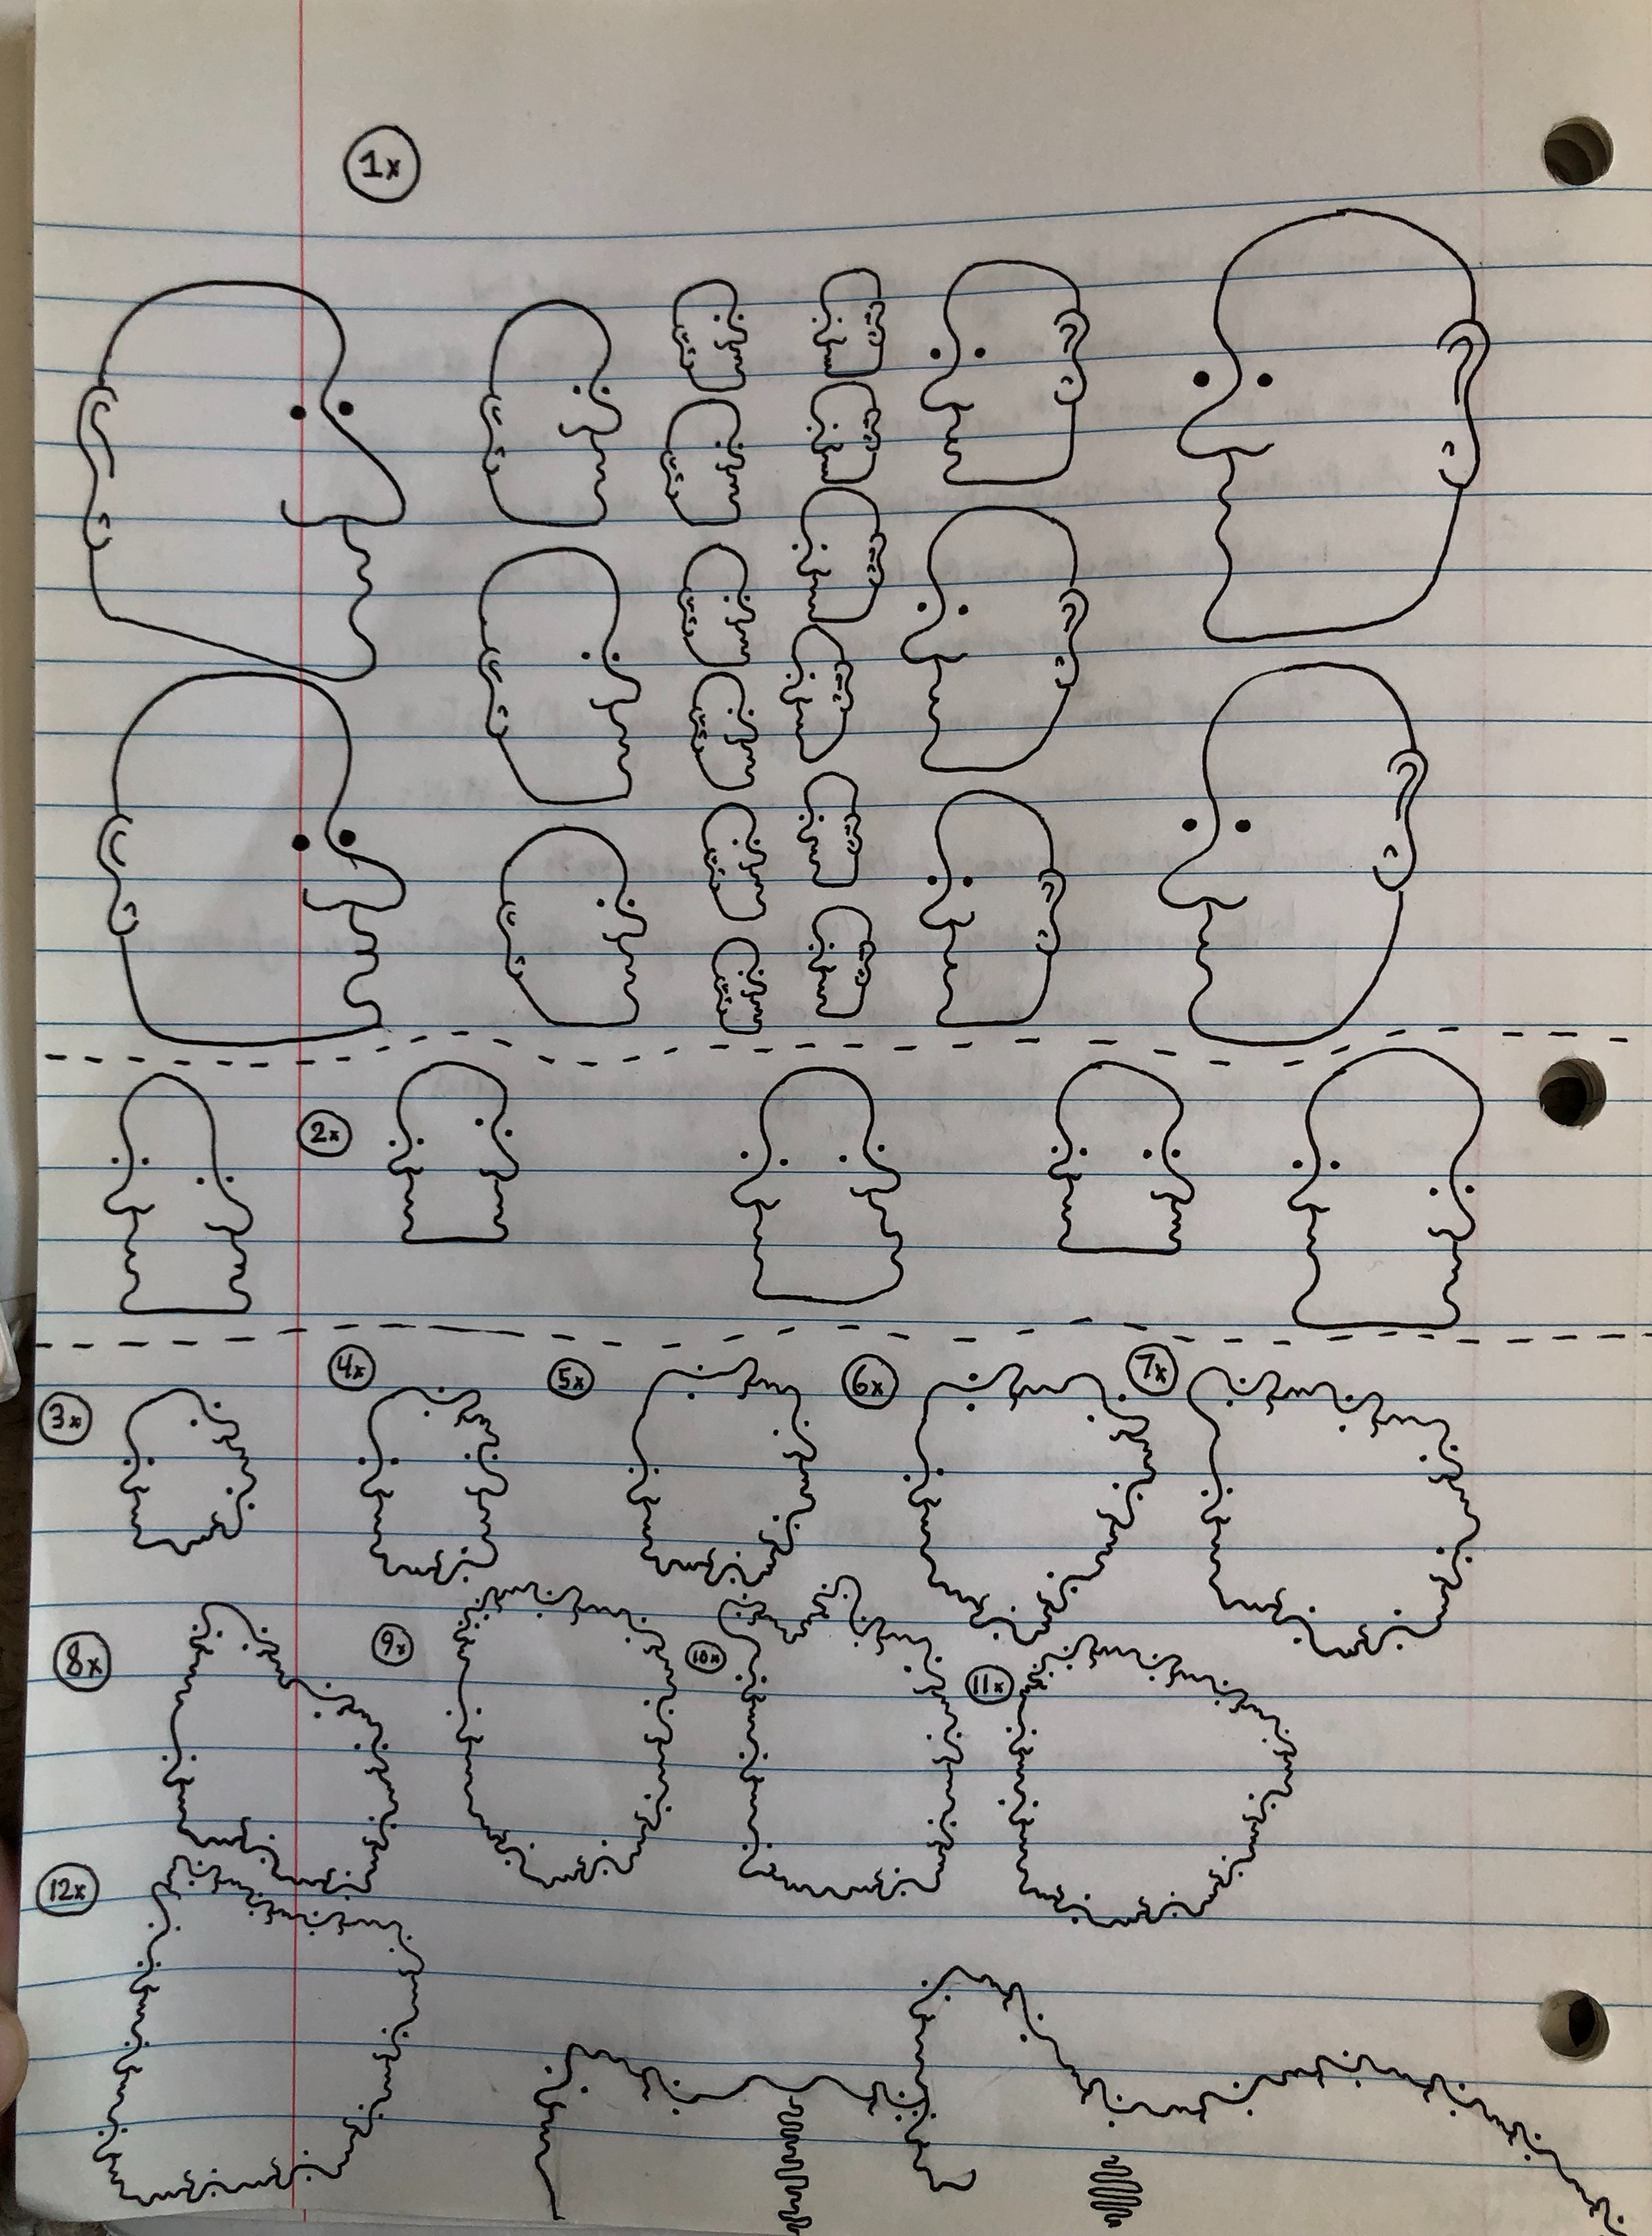 1x
2x
3x
4x
5x
6x
7x
8x
9x
10x
11x
12x